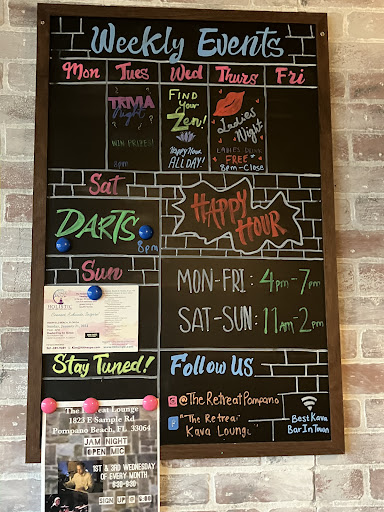 Weekly Events
Mon Tues Wed Thurs Fri
TRIVIA
Night
WIN PRIZES!
8pm
FIND
Your
Zen!
Happy Hour
ALL DAY!
Ladies
Night
LADIES DRINK
FREE*
8pm-Close
Sat
DARTS
8pm
HAPPY
HOUR
Sun
MON-FRI: 4pm-7pm
SAT-SUN: 11AM-2pm
HOLISTIC
Stay Tuned!
Follow Us
@TheRetreatPompano
"The Retreat
Kava Lounge"
Best Kava
Bar In Town
The Retreat Lounge
1823 E Sample Rd
Pompano Beach, FL 33064
JAM NIGHT
OPEN MIC
1ST & 3RD WEDNESDAY
OF EVERY MONTH
6:30-9:30
SIGN UP @ 6:00